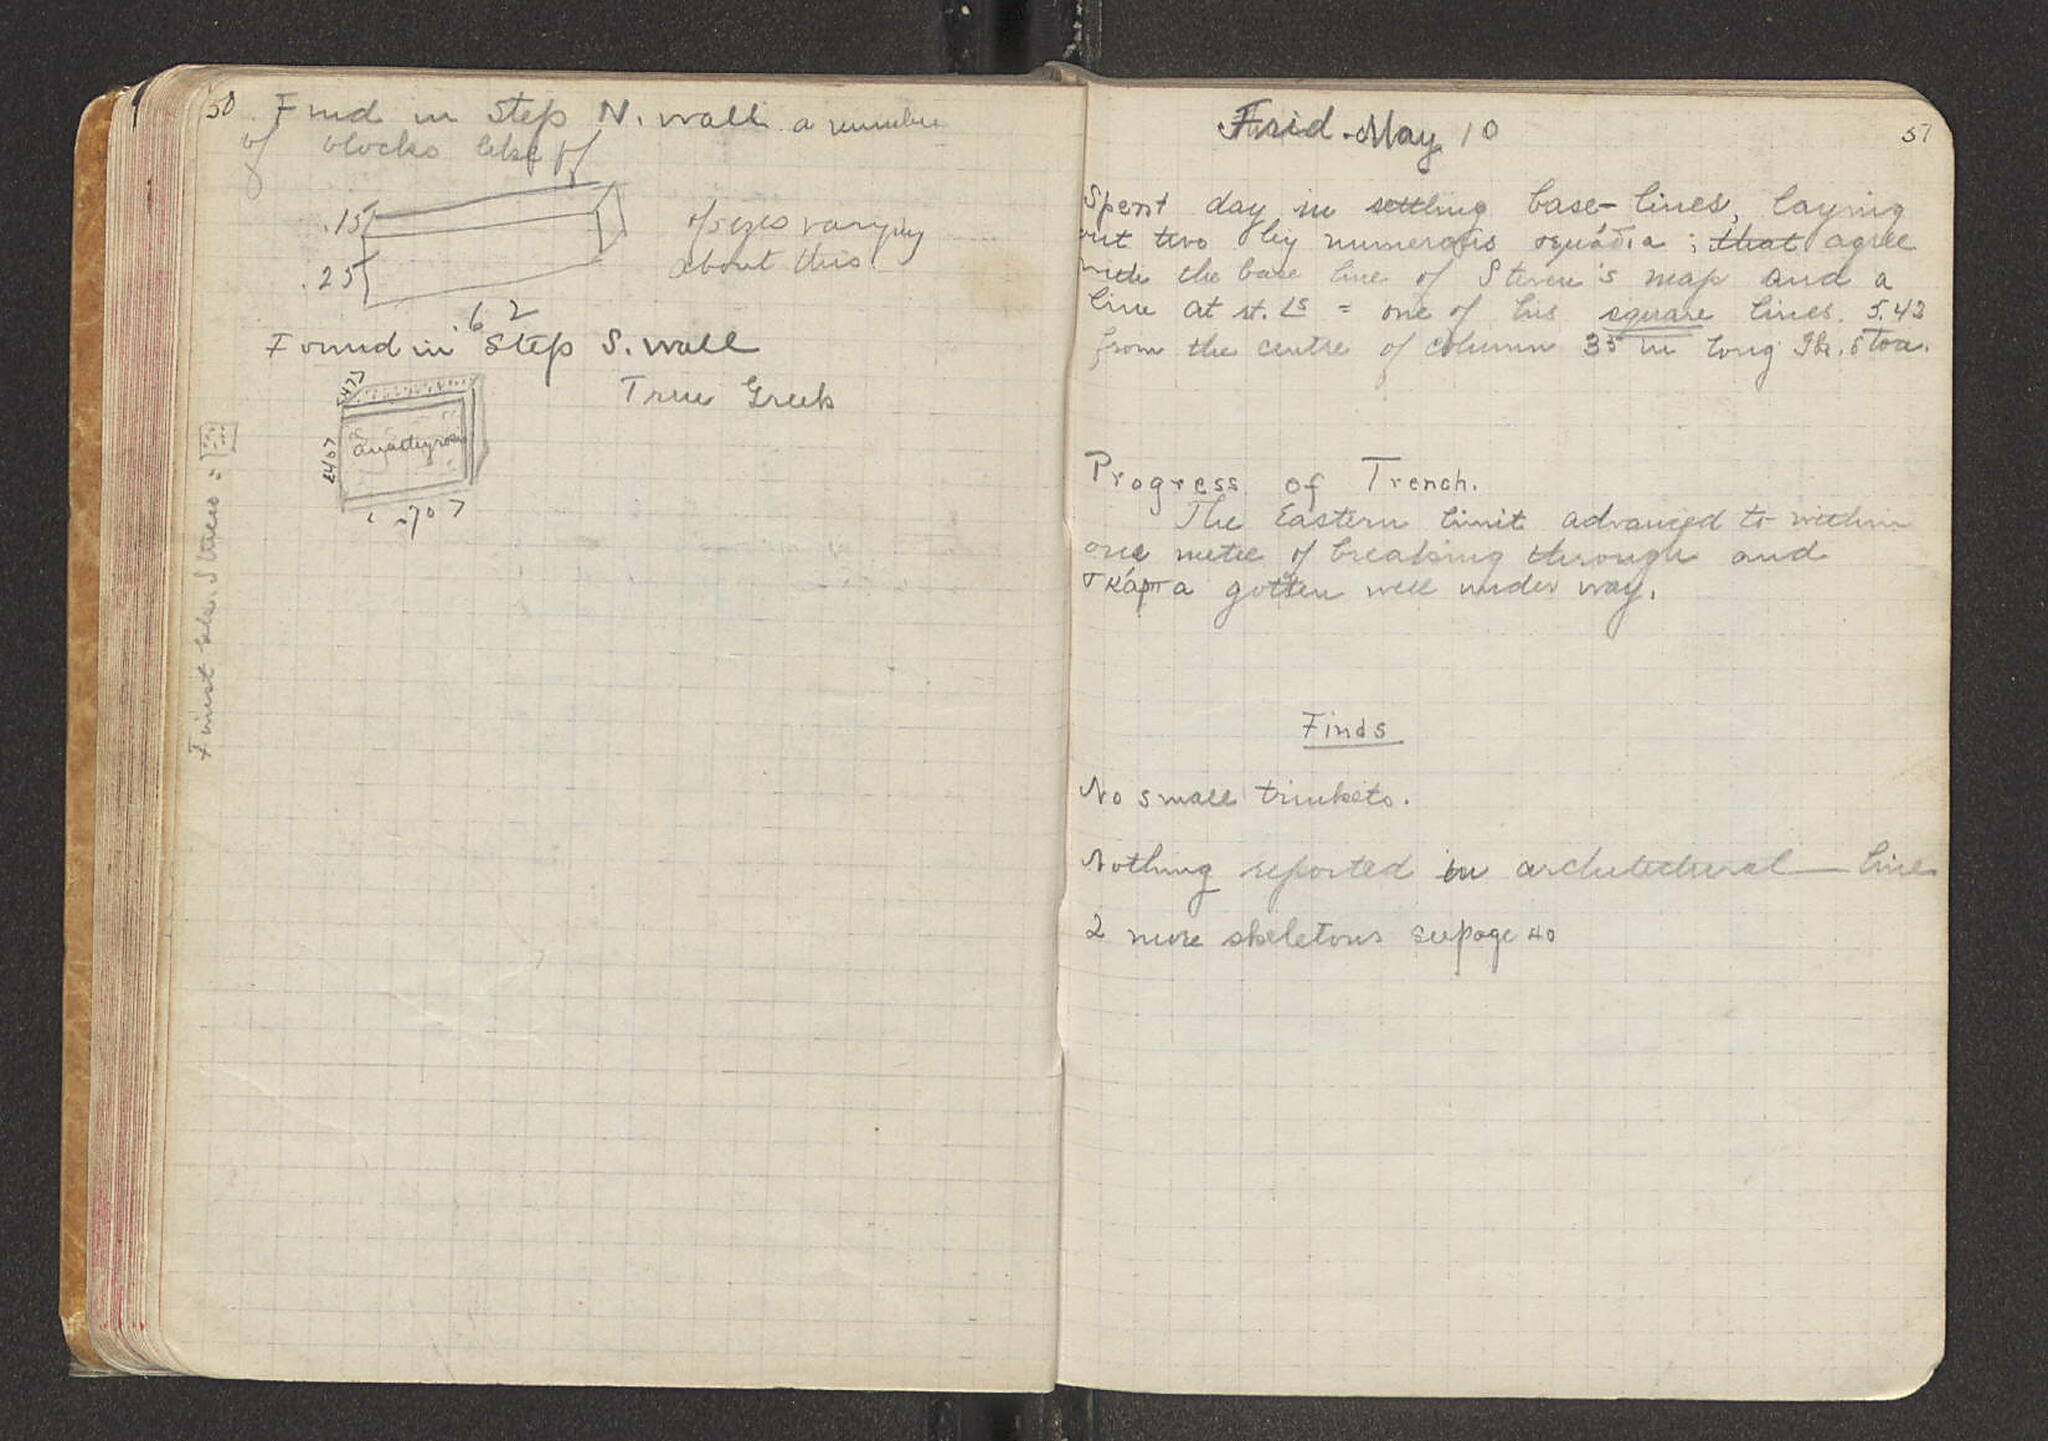 50
Find in Step N. wall a number
of blocks like
.15
of sizes varying
.25
about this
.62
Found in Step S. wall
True Greek
.477
anathyrosis
.707
51
Frid. May 10
Spent day in settling base-lines, laying
out two by numerous σημάδια; that agree
with the base line of Steven's map and a
line at st. = one of his square lines. 5.43
from the centre of column 35 in long Stoa.
Progress of Trench.
The Eastern limit advanced to within
one metre of breaking through and
σκάρπα gotten well under way.
Finds
No small trinkets.
Nothing reported in architectural line
2 more skeletons see page 40